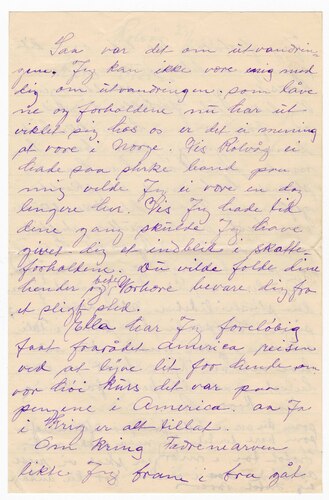 Saa var det om utvandrin-
gen. Jeg kan ikke være enig med
dig om utvandringen. som lave
ne og forholdene nu har ut
viklet sig hos os er det ei mening
at være i Norge. Vis Rolvåg ei
hade saa sterke baand paa
mig vilde Jeg ei være en dag
lengere her. Vis Jeg hade tid
dene gang skulde Jeg have
givet dig et indblik i skatte
forholdene. Du vilde folde dine
hender og bede Vorhere bevare dig fra
et sligt sted.
Ella har Jeg foreløbig
faat fraraadet America reisen
ved at lyve lit for hende om
vor høi kurs det var paa
pengene i America. aa Ja
i Krig er alt tillat.
Om kring Fædrenearven
likte Jeg fram i fra gåt